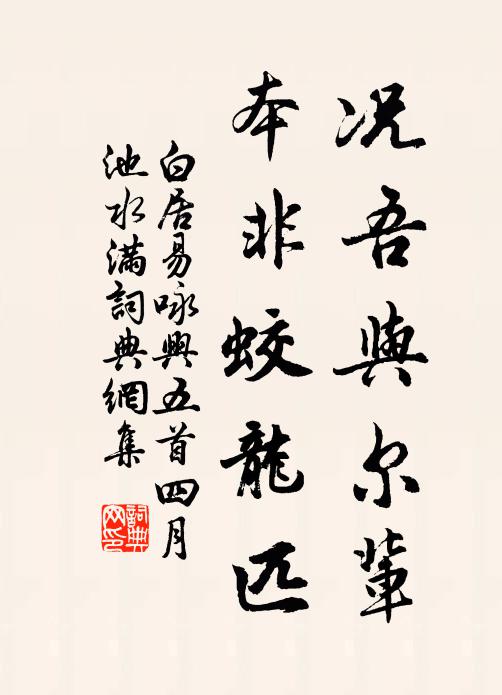 况吾與尔輩
本非蛟龍匹
白居易咏興五首四月
池水滿詞典網集
詞典
网印